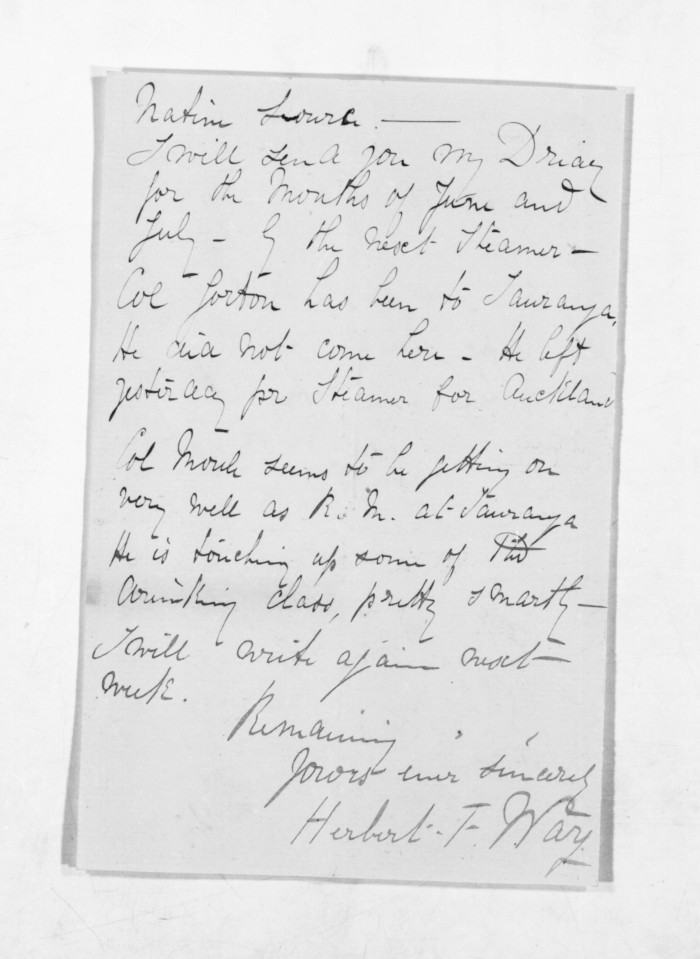 Native source. —
I will send you my Driay
for the Months of June and
July - by the next Steamer -
Col Gorton has been to Tauranga,
He did not come here - He left
yesterday pr Steamer for Auckland
Col Moule seems to be getting on
very well as R. M. at Tauranga
He is touching up some of The
drinking class, pretty smartly -
I will write again next
week.
Remaining
yours ever sincerely
Herbert. F. Way